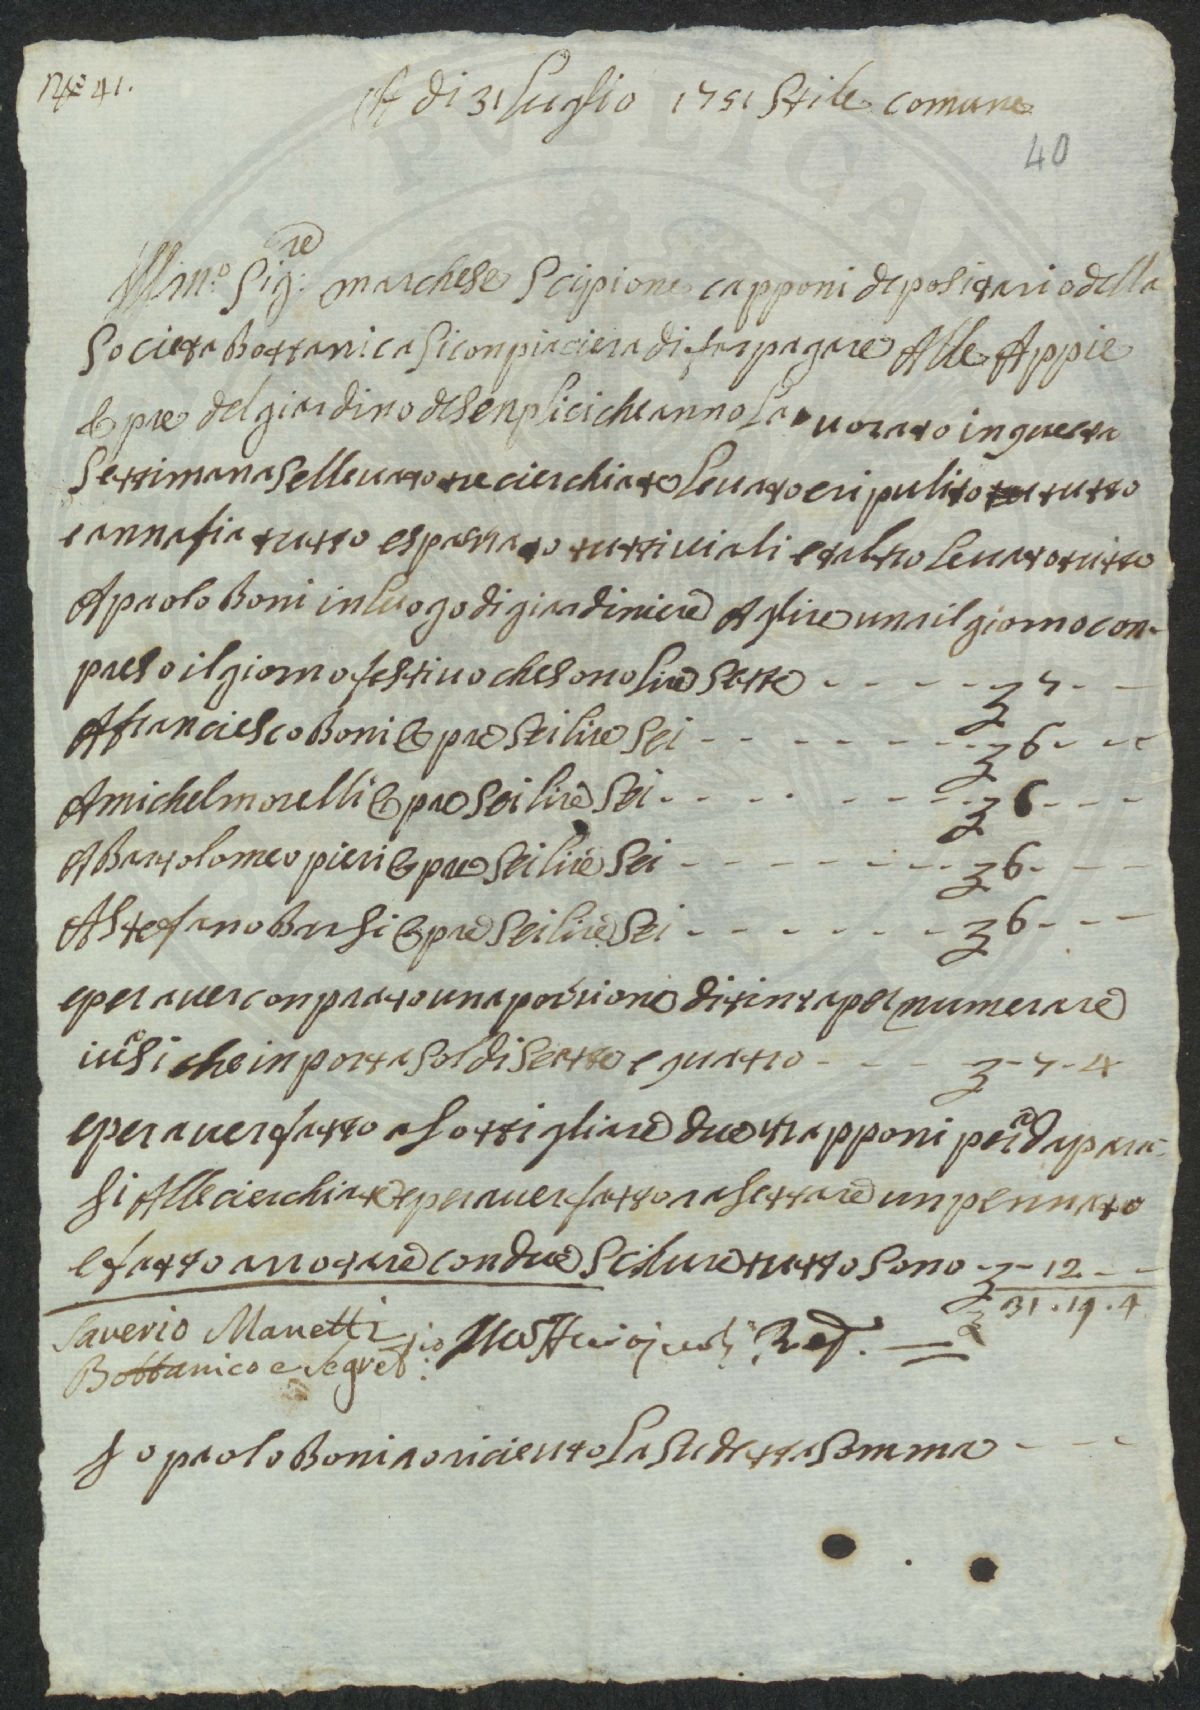 N.° 41.
A di 31 Luglio 1751 Stile comune
40
Ill.mo Sig.re marchese Scipione capponi depositario della
Societa Bottanica si conpiaciera di far pagare Alle Appie
Opre del giardino de Senplici che anno La uorato in questa
Settimana Selleuato recierchiate leuato e ripulito tutto
annafia tutto e spassato tutti i uiali e taltro leuato tutto
A paolo Boni in luogo di giardiniere A lire una il giorno con-
preso il giorno festiuo che sono lire Sette - - - - - 7 - -
A franciesco Boni Opre Sei lire Sei - - - - - - - 6 - - -
A michel morelli Opre Sei lire Sei - - - - - - - 6 - - -
A Bartolomeo pieri Opre Sei lire Sei - - - - - - - 6 - - -
A Stefano Busi Opre Sei lire Sei - - - - - - - 6 - - -
e per auer conprato una porsione di tinta per numerare
i uasi che inporta Soldi Sette e quattro - - - - 7 - 4
e per auer fatto a Sottigliare due trapponi per da para-
si Alle cierchiate e per auer fatto rasettare un pennato
e fatto arrotare con due Scilure tutto Sono - - 12 - -
31 . 19 . 4
Saverio Manetti
Bottanico e Segret.rio
Io paolo Boni ao riceuto La Sudetta Somma - - -